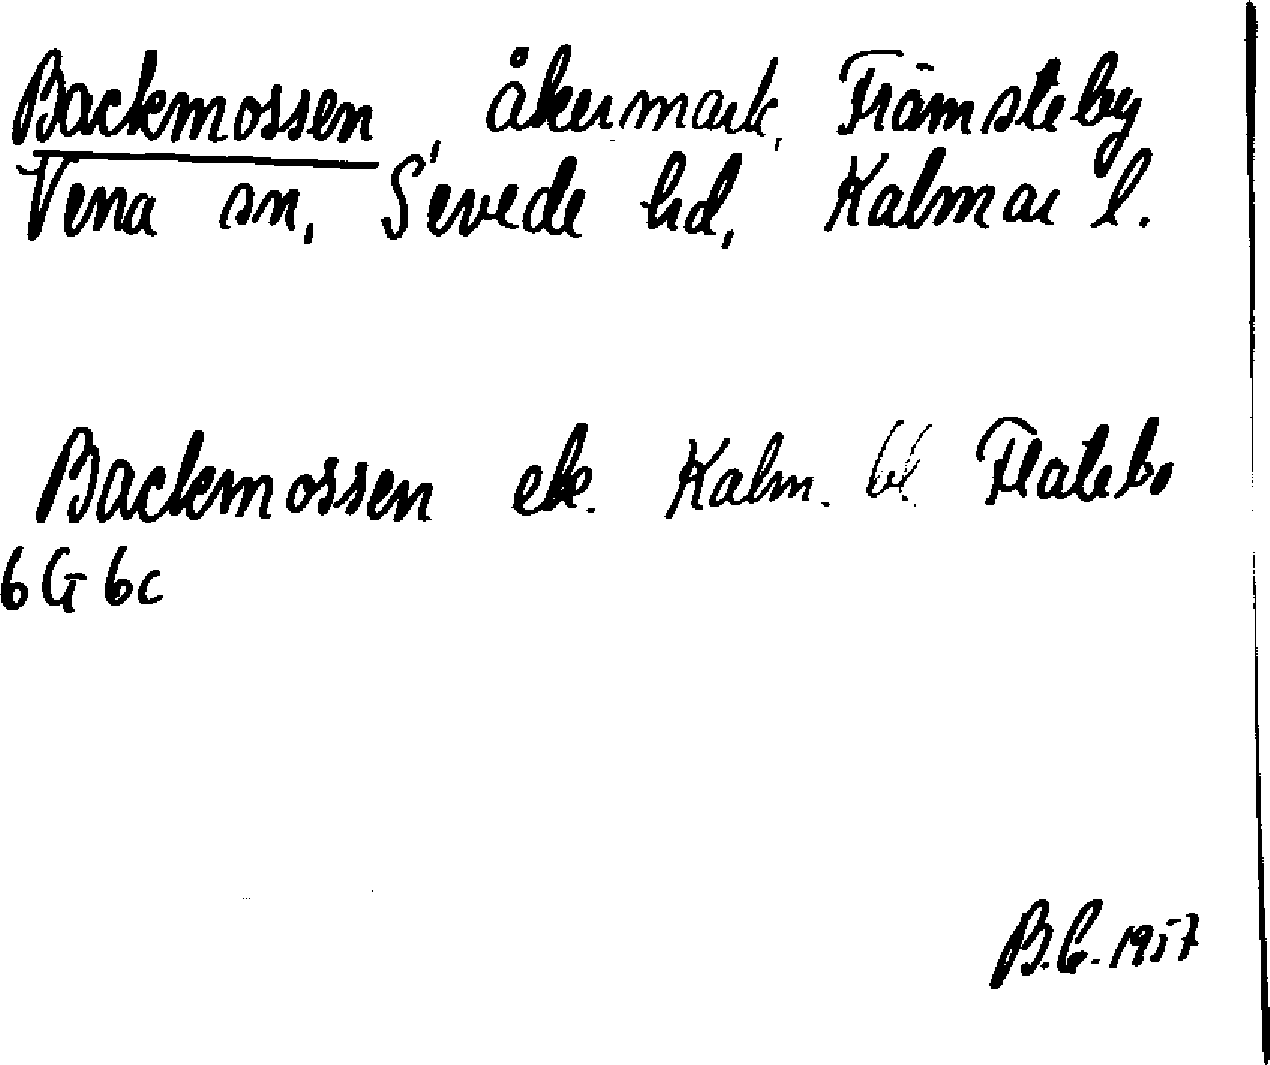 Backmossen, åkermark, Främsteby
Vena sn, Sevede hd, Kalmar l.
Backmossen ek. Kalm. bl Flatebo
6G 6c
B.G. 1957